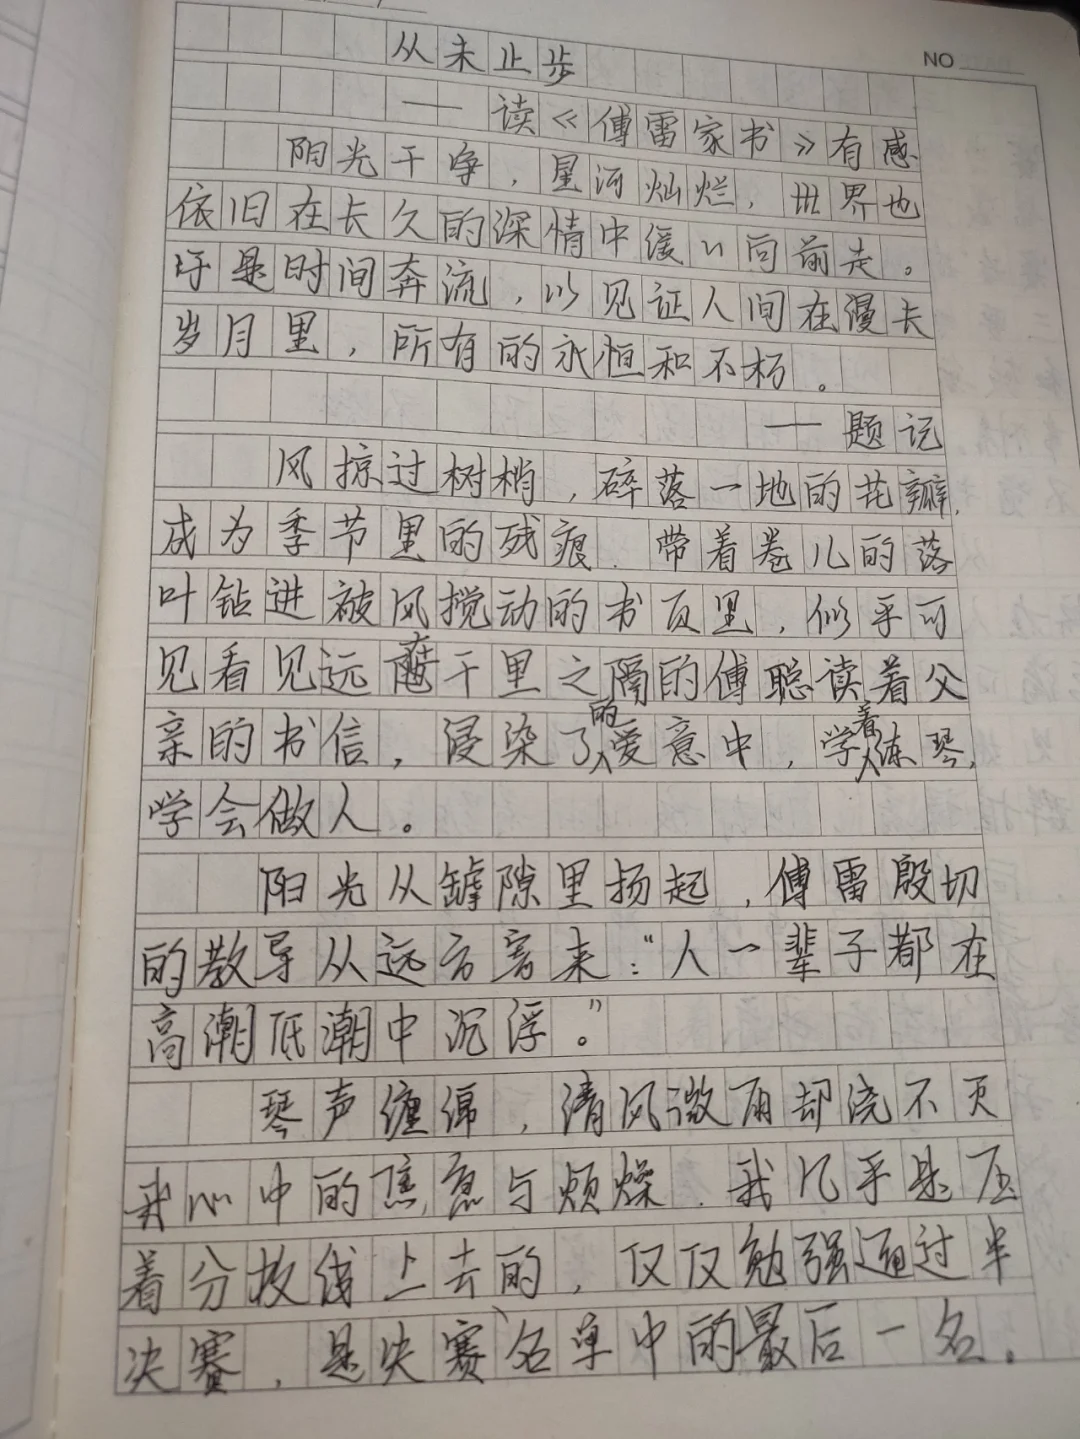 NO
从未止步
——读《傅雷家书》有感
阳光干净，星河灿烂，世界也
依旧在长久的深情中缓缓向前走。
于是时间奔流，以见证人间在漫长
岁月里，所有的永恒和不朽。
——题记
风掠过树梢，碎落一地的花瓣，
成为季节里的残痕．带着卷儿的落
叶钻进被风搅动的书页里，似乎可
见看见远在千里之隔的傅聪读着父
亲的书信，浸染了的爱意中，学着练琴，
学会做人。
阳光从罅隙里扬起，傅雷殷切
的教导从远方寄来：“人一辈子都在
高潮低潮中沉浮。”
琴声缠绵，清风微雨却浇不灭
我心中的焦急与烦燥．我几乎是压
着分数线上去的，仅仅勉强通过半
决赛，是决赛名单中的最后一名。